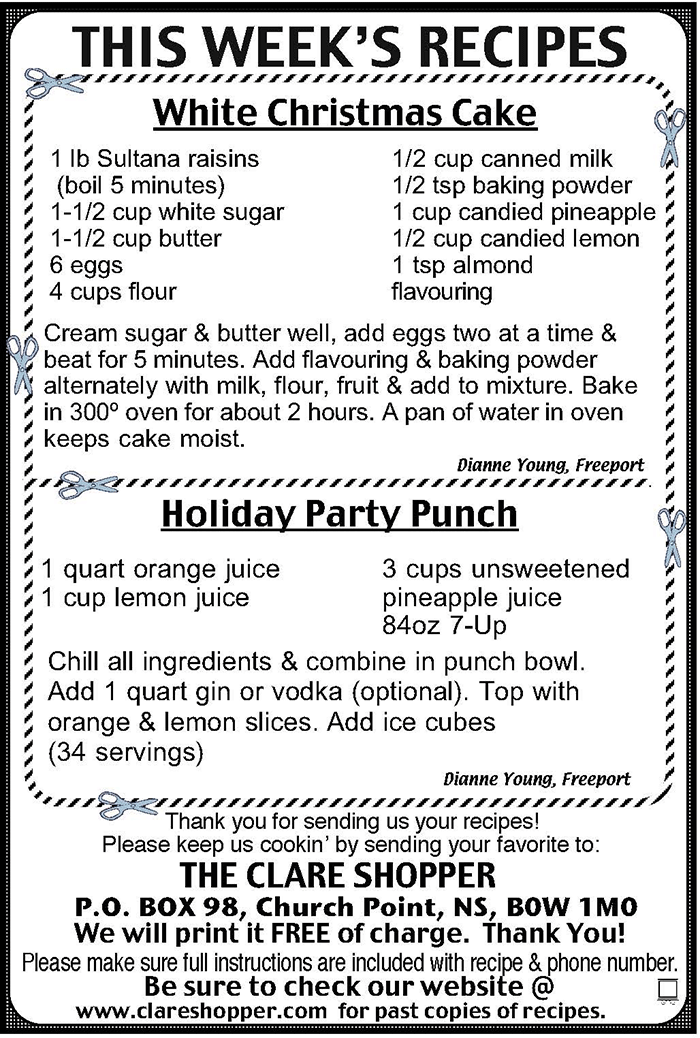 THIS WEEK'S RECIPES
White Christmas Cake
1 lb Sultana raisins
(boil 5 minutes)
1-1/2 cup white sugar
1-1/2 cup butter
6 eggs
4 cups flour
1/2 cup canned milk
1/2 tsp baking powder
1 cup candied pineapple
1/2 cup candied lemon
1 tsp almond
flavouring
Cream sugar & butter well, add eggs two at a time &
beat for 5 minutes. Add flavouring & baking powder
alternately with milk, flour, fruit & add to mixture. Bake
in 300º oven for about 2 hours. A pan of water in oven
keeps cake moist.
Dianne Young, Freeport
Holiday Party Punch
1 quart orange juice
1 cup lemon juice
3 cups unsweetened
pineapple juice
84oz 7-Up
Chill all ingredients & combine in punch bowl.
Add 1 quart gin or vodka (optional). Top with
orange & lemon slices. Add ice cubes
(34 servings)
Dianne Young, Freeport
Thank you for sending us your recipes!
Please keep us cookin' by sending your favorite to:
THE CLARE SHOPPER
P.O. BOX 98, Church Point, NS, B0W 1M0
We will print it FREE of charge. Thank You!
Please make sure full instructions are included with recipe & phone number.
Be sure to check our website @
www.clareshopper.com for past copies of recipes.